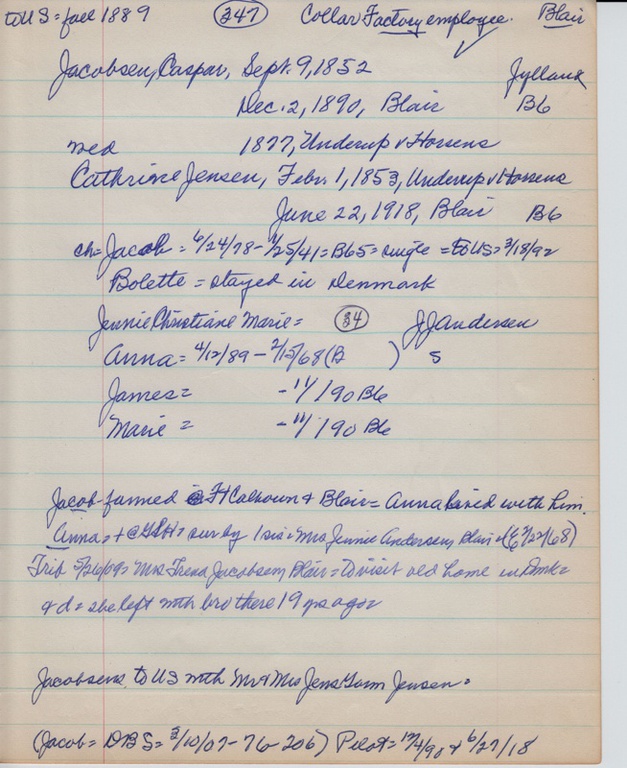 to US = fall 1889 (347) Collar Factory employee. Blair
Jacobsen, Caspar, Sept. 9, 1852 Jylland
Dec. 2, 1890, Blair B6
wed 1877, Underup v Horsens
Cathrine Jensen, Febr. 1, 1853, Underup v Horsens
June 22, 1918, Blair B6
ch = Jacob = 6/24/78 - 1/25/41 = B65 = single = to US = 3/18/92
Bolette = stayed in Denmark
Jennie Christiane Marie = (34) JJ Andersen
Anna = 4/12/89 - 2/15/68 (B ) S
James = - 11/190 B6
Marie = - 11/190 B6
Jacob farmed @ Ft Calhoun & Blair = Anna lived with him.
Anna = + @ = sur by 1 sis = Mrs Jennie Andersen, Blair = (E 2/22/68)
Trib 5/26/09 = Mrs Trena Jacobsen, Blair = to visit old home in Dmk =
& d = she left with bro there 19 yrs ago =
Jacobsens to US with Mr & Mrs Jens Gorm Jensen =
(Jacob = DBS = 3/10/07 - 76 - 206) Pilot = 12/4/90 & 6/27/18